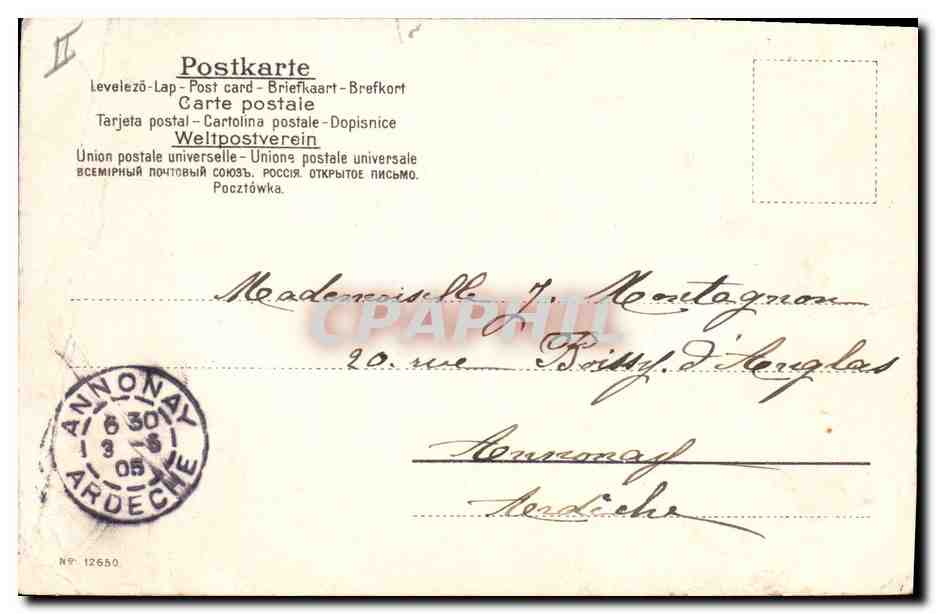 II
Postkarte
Levelező-Lap - Post card - Briefkaart - Brefkort
Carte postale
Tarjeta postal - Cartolina postale - Dopisnice
Weltpostverein
Union postale universelle - Unione postale universale
ВСЕМІРНЫЙ ПОЧТОВЫЙ СОЮЗЪ. РОССІЯ. ОТКРЫТОЕ ПИСЬМО.
Pocztówka.
Mademoiselle J. Montagnon
CPAPHIL
20. rue Boissy. d'Anglas
Annonay
Ardèche
ANNONAY
6 30
3 - 6
05
ARDECHE
No. 12650